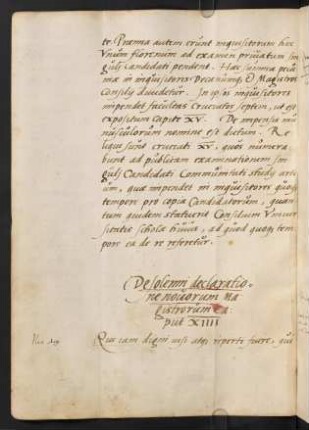 te. Præmia autem erunt inquisitorum hæc
Vnum florenum ad examen priuatum sin
guli Candidati pendent. Hæc summa præ
ma in inquisitores Decanum, & Magistros
Consilij diuidetur. In ipsos inquisitores
impendet facultas Cruciatos septem, ut est
expositum Capite XV. De impensa mu
nusculorum nomine est dictum. Re
liqui sunt cruciati XV. quos numera
bunt ad publicam examinationem sin
guli Candidati Communitati studij arti
um, quæ impendet in inquisitores quoq
tempore pro copia Candidatorum, quan
tum quidem statuerit Consilium Vniuer
sitatis scholæ huius, ad quod quoq tem
pore ea de re referetur.
De solemni declaratio
ne nouorum Ma
gistrorum Ca
put XIIII
Qui iam digni uisi atq reperti fuere, qui